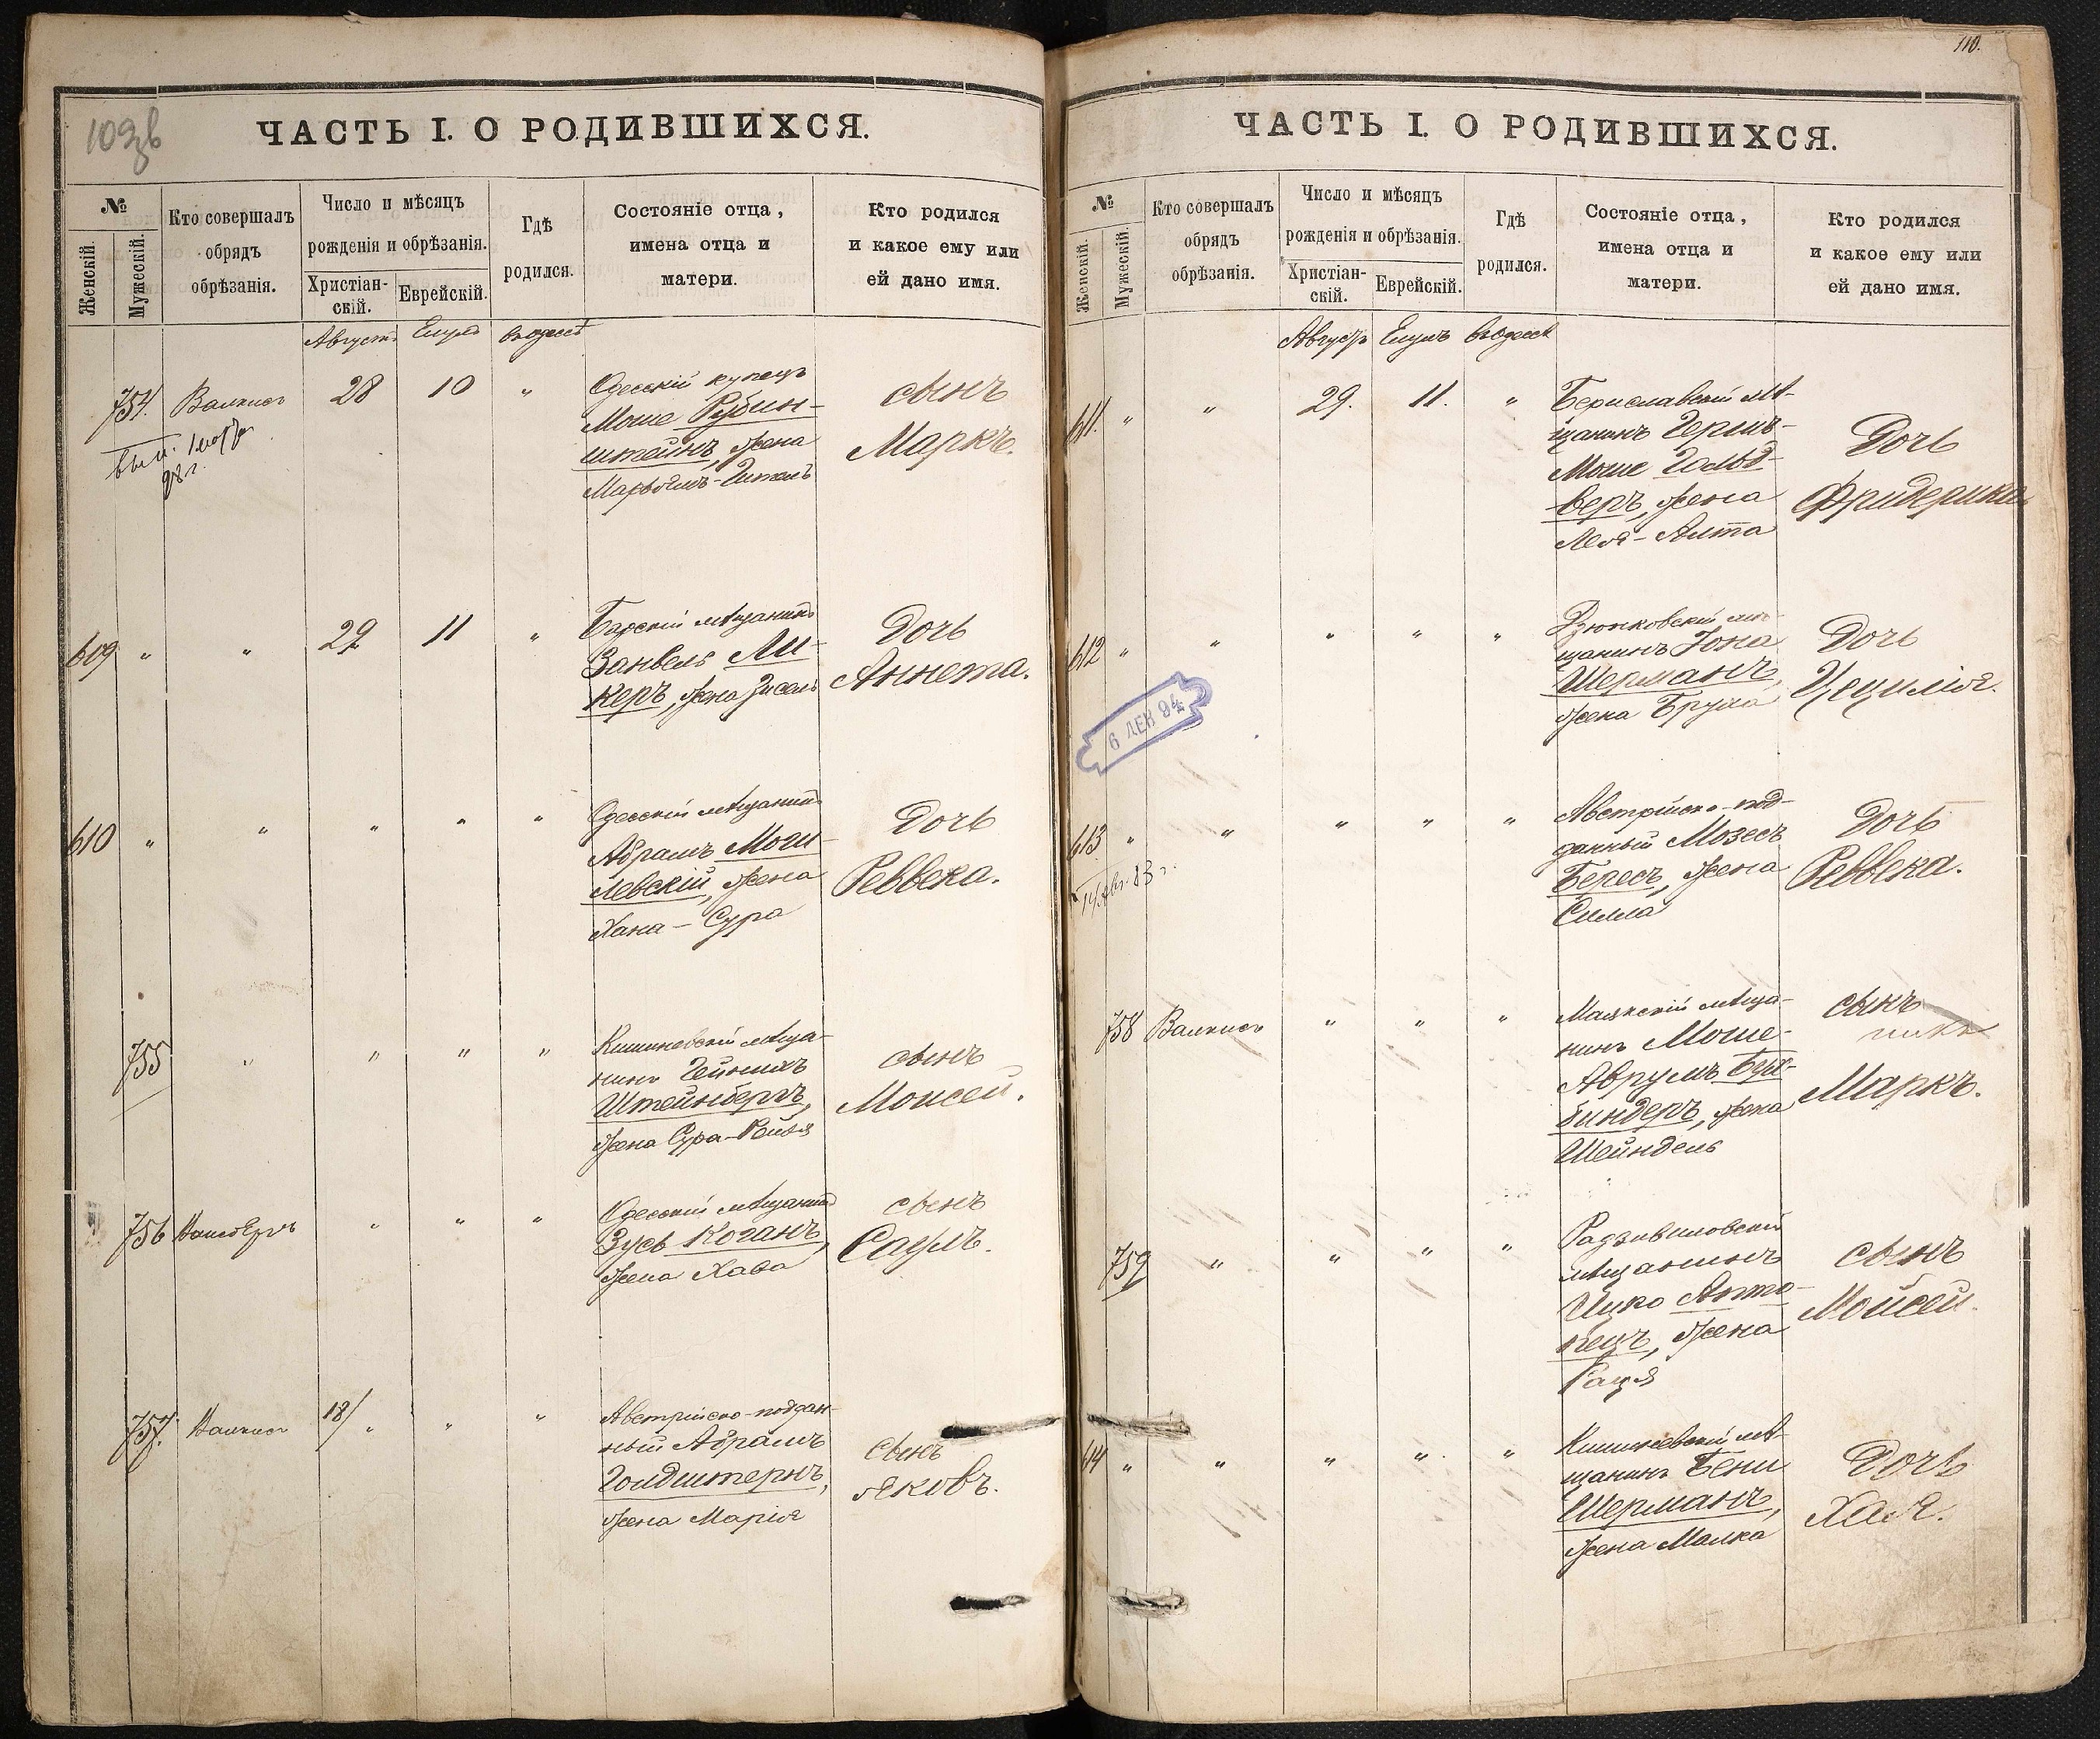 103 зв
ЧАСТЬ I. О РОДИВШИХСЯ.
№
Женскій.
Мужескій.
Кто совершалъ
обрядъ
обрѣзанія.
Число и мѣсяцъ
рожденія и обрѣзанія.
Христіан-
скій.
Еврейскій.
Гдѣ
родился.
Состояніе отца,
имена отца и
матери.
Кто родился
и какое ему или
ей дано имя.
Августъ Елулъ въ Одессѣ
754. 28 10 "
Одесскій купецъ
Моше Рубин-
штейнъ, жена
сынъ
Маркъ.
609 " " 29 11 "
Барскій мѣщанинъ
Занвель Ли-
керъ, жена Зисель
Дочь
Аннета.
610 " " " " "
Одесскій мѣщанинъ
Абрамъ Моги-
левскій, жена
Хана-Сура
Дочь
Реввека.
755 " " " "
Кишиневскій мѣща-
нинъ Гейнихъ
Штейнбергъ,
жена Сура-Рейзя
сынъ
Моисей.
756 " " "
Одесскій мѣщанинъ
Зусь Коганъ,
жена Хава
сынъ
Саулъ.
757. 18/" " "
Австрійско-поддан-
ный Абрамъ
Голдштернъ,
жена Марія
Сынъ
Яковъ.
110.
ЧАСТЬ I. О РОДИВШИХСЯ.
№
Женскій.
Мужескій.
Кто совершалъ
обрядъ
обрѣзанія.
Число и мѣсяцъ
рожденія и обрѣзанія.
Христіан-
скій.
Еврейскій.
Гдѣ
родился.
Состояніе отца,
имена отца и
матери.
Кто родился
и какое ему или
ей дано имя.
Августъ Елулъ въ Одессѣ
611. " " 29. 11. "
Бериславскій мѣ-
щанинъ Гершъ-
Моше Гольд-
веръ, жена
Лея-Алта
Дочь
Фридерика
612 " " " " "
мѣ-
щанинъ Іона
Шерманъ,
жена Бруха
Дочь
Цецилія.
6 ДЕК 94
613 " " " " "
Австрійско-под-
данный Мозесъ
Бересъ, жена
Силла
Дочь
Реввека.
758 Валкисъ " " "
Маякскій мѣща-
нинъ Моше-
Аврумъ Бух-
биндеръ, жена
Шейндель
сынъ
Маркъ.
759 " " " "
Радзивиловскій
мѣщанинъ
Ицко Апто-
кецъ, жена
сынъ
Мойсей.
614 " " " " "
Кишиневскій мѣ-
щанинъ Бени
Шерманъ,
жена Малка
Дочь
Хая.